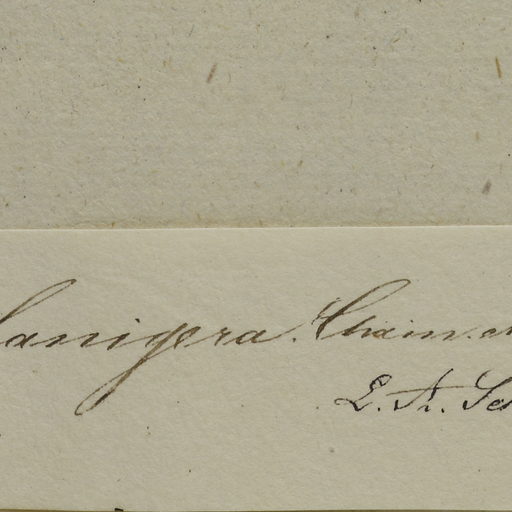 lanigera. Cham. et
E. A. Sch